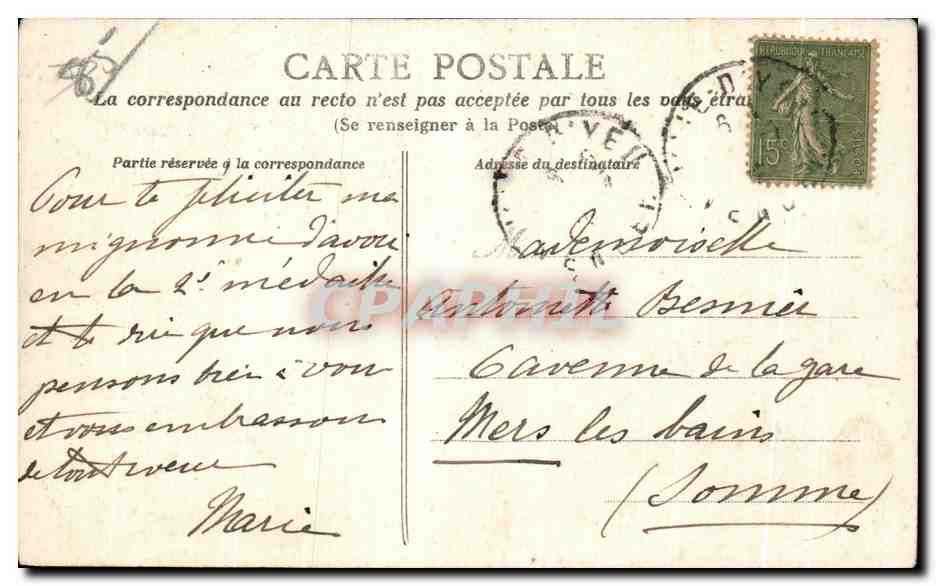 CARTE POSTALE
La correspondance au recto n'est pas acceptée par tous les pays étra
(Se renseigner à la Poste
Partie réservée à la correspondance
Adresse du destinataire
REPUBLIQUE FRANÇAISE
15c
POSTES
D'YEU
Pour te féliciter ma
mignonne d'avoir
en la 2e médaille
et te dire que nous
pensons bien à vous
et vous embrassons
de tout cœur
Marie
Mademoiselle
Antoinette Besnier
6 avenue de la gare
Mers les bains
(Somme)
CPAPHIL